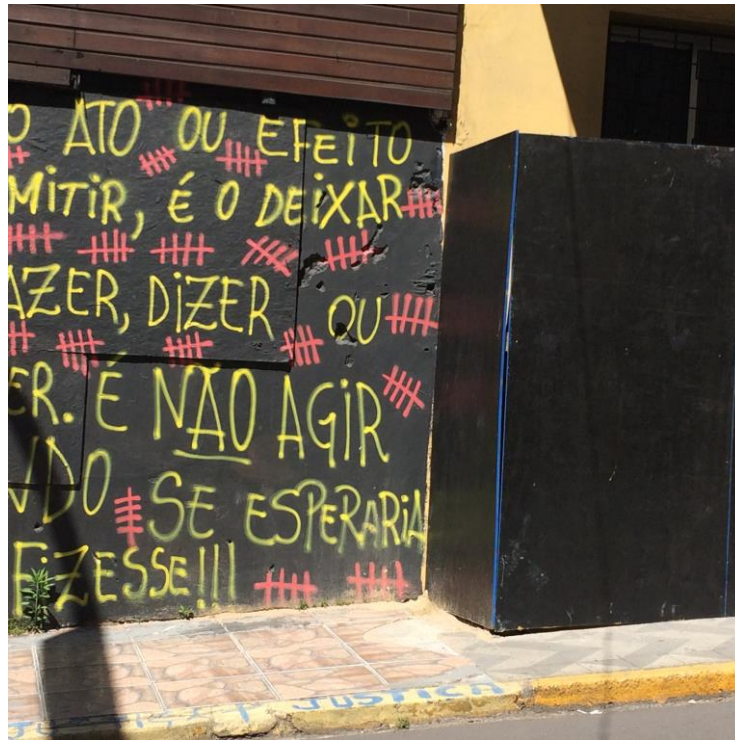 O ATO OU EFEITO
MITIR, É O DEIXAR
AZER, DIZER OU
ER. É NÃO AGIR
NDO SE ESPERARIA
FIZESSE!!!
JUSTIÇA